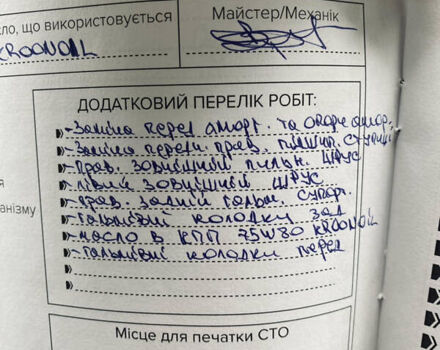 ло, що використовується
KROONOIL
Майстер/Механік
ДОДАТКОВИЙ ПЕРЕЛІК РОБІТ:
-Заміна перед аморт. та опори амор.
-Заміна перед. прав. підшип. ступиці
-прав. зовнішній пильн. ШРУС
-лівий зовнішній ШРУС
-прав. задній гальм. супорт.
-гальмівні колодки зад
-масло в КПП 75W80 KROONOIL
-гальмівні колодки перед
я
анізму
Місце для печатки СТО